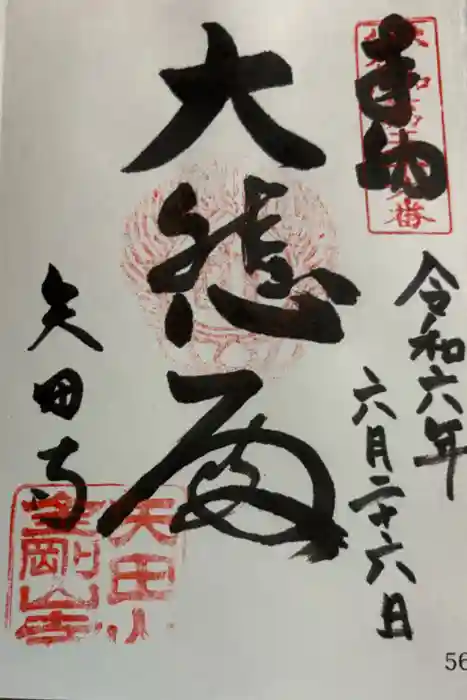 奉納
令和六年
六月二十六日
大悲殿
矢田寺
矢田山
金剛山寺
56